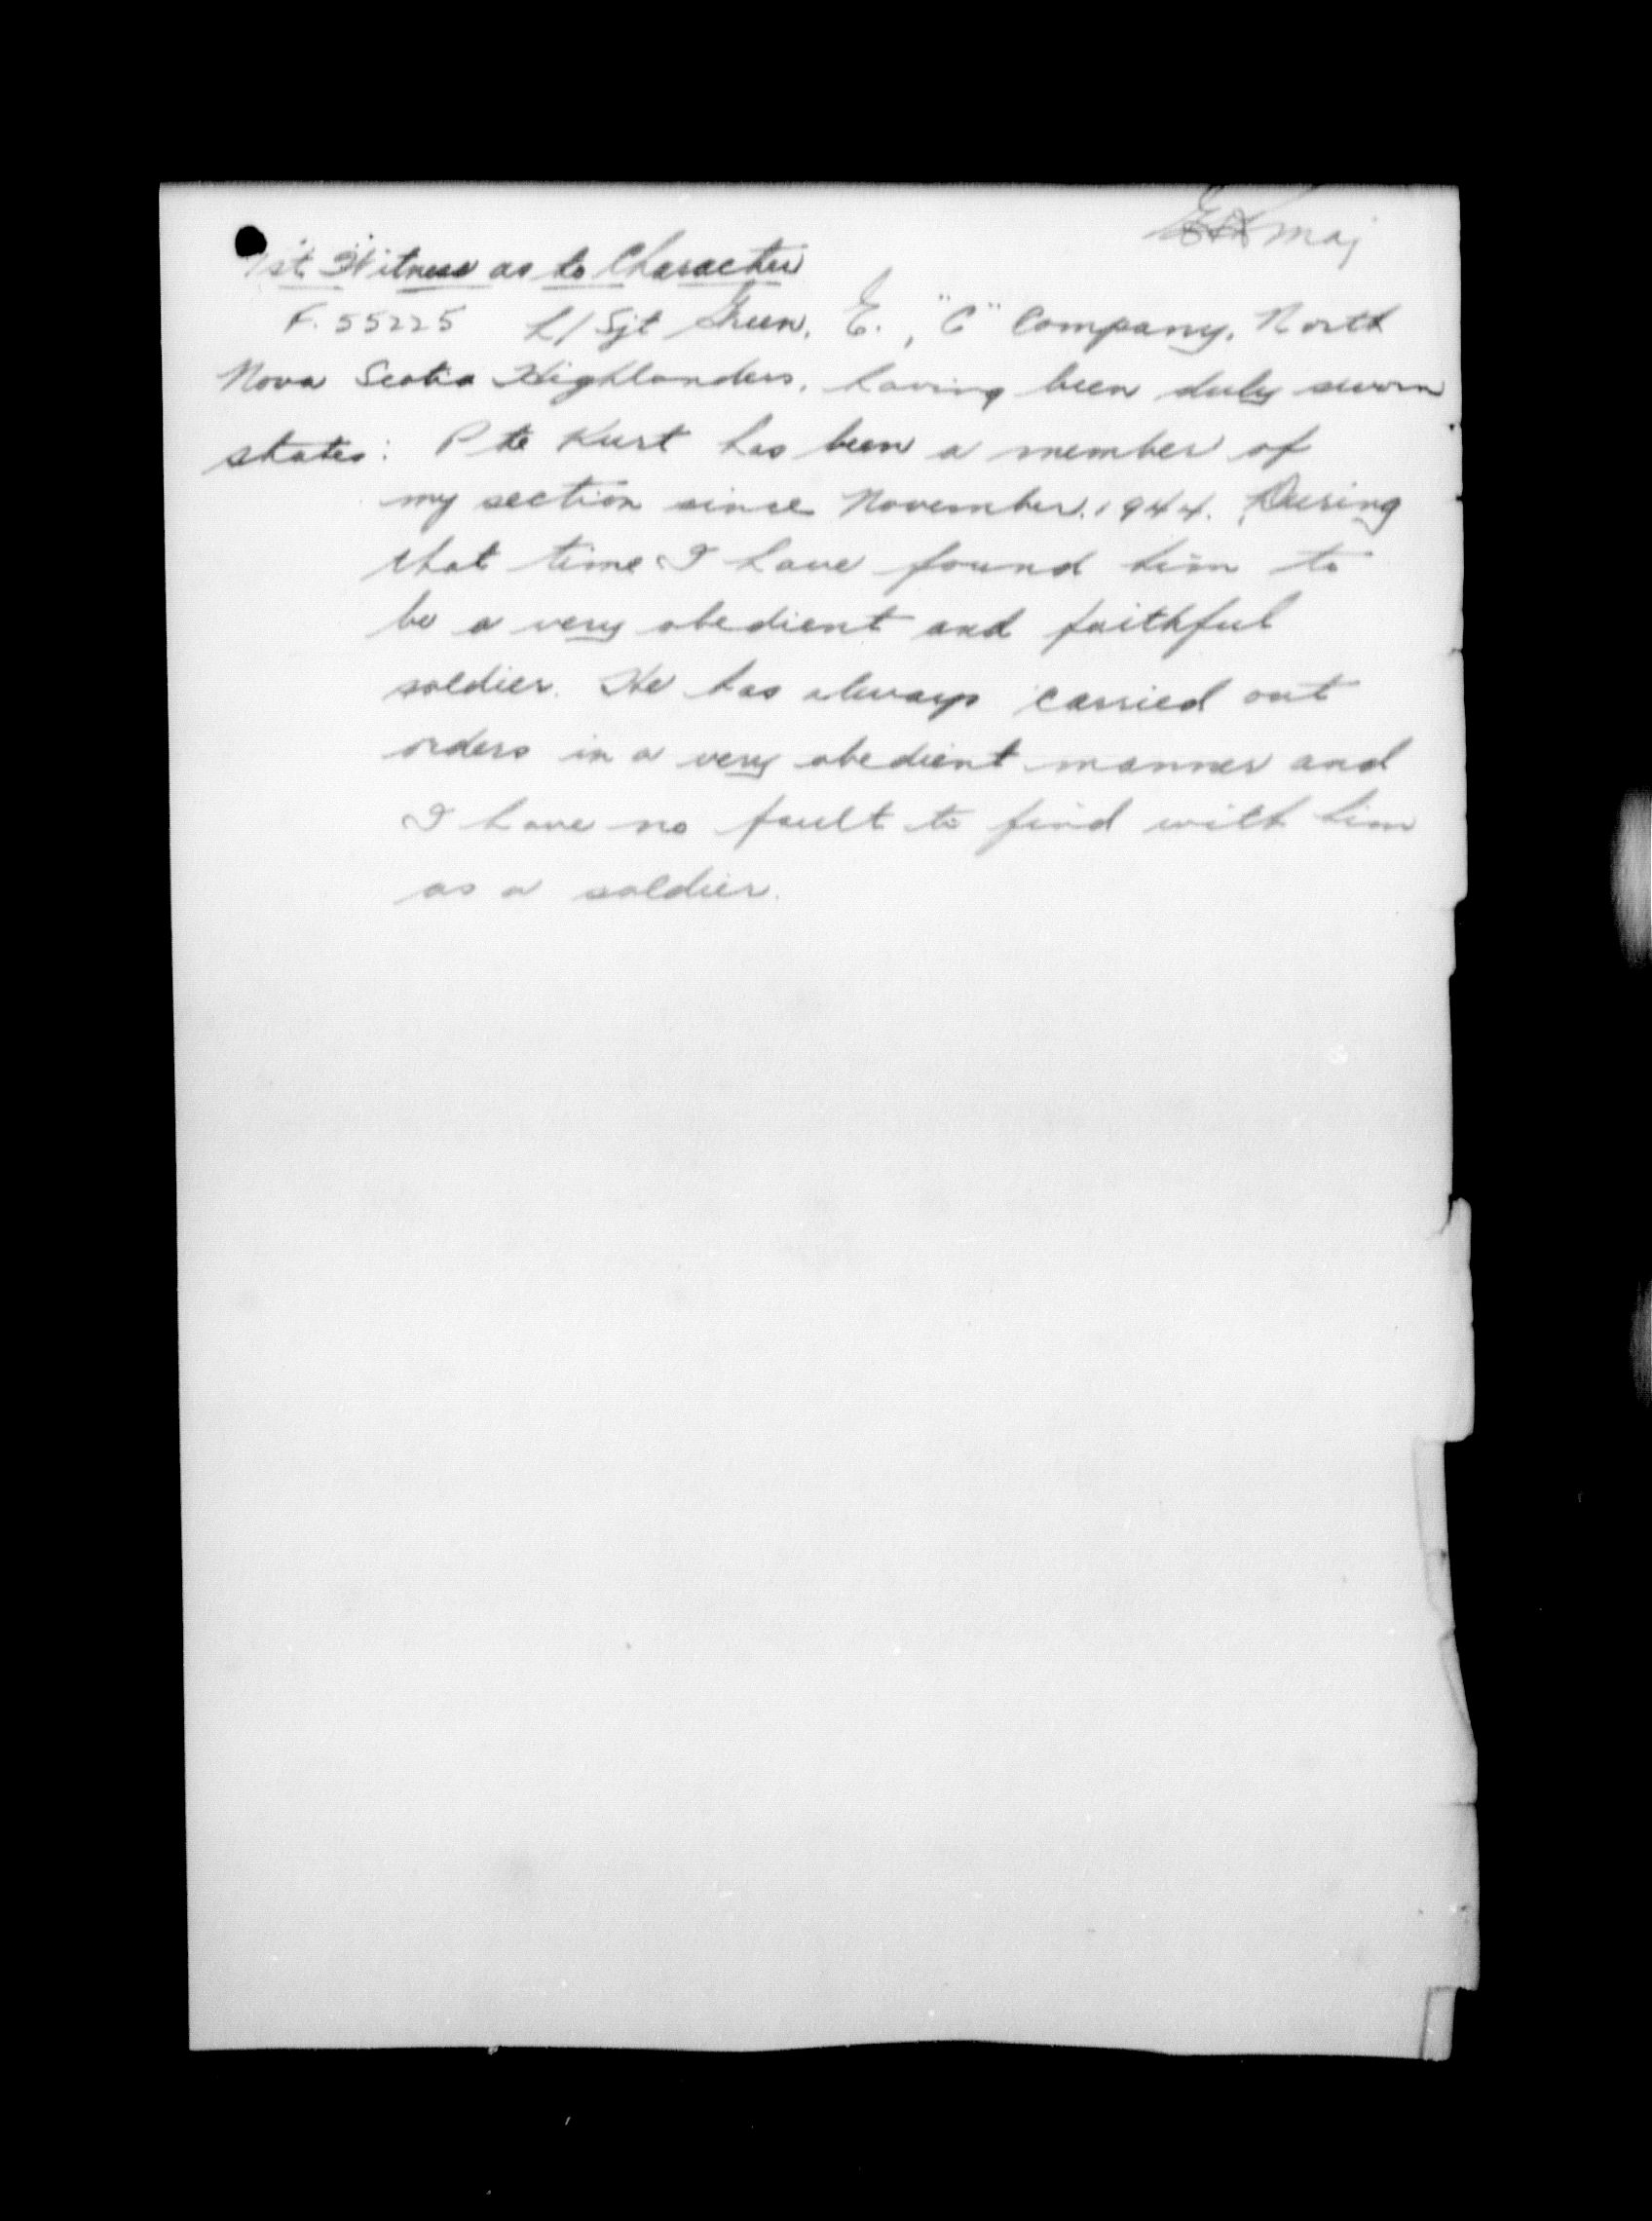 Maj
1st Witness as to Character
F. 55225 L/Sjt Green, E., "C" Company, North
Nova Scotia Highlanders, having been duly sworn
states: Pte Kurt has been a member of
my section since November, 1944. During
that time I have found him to
be a very obedient and faithful
soldier. He has always carried out
orders in a very obedient manner and
I have no fault to find with him
as a soldier.